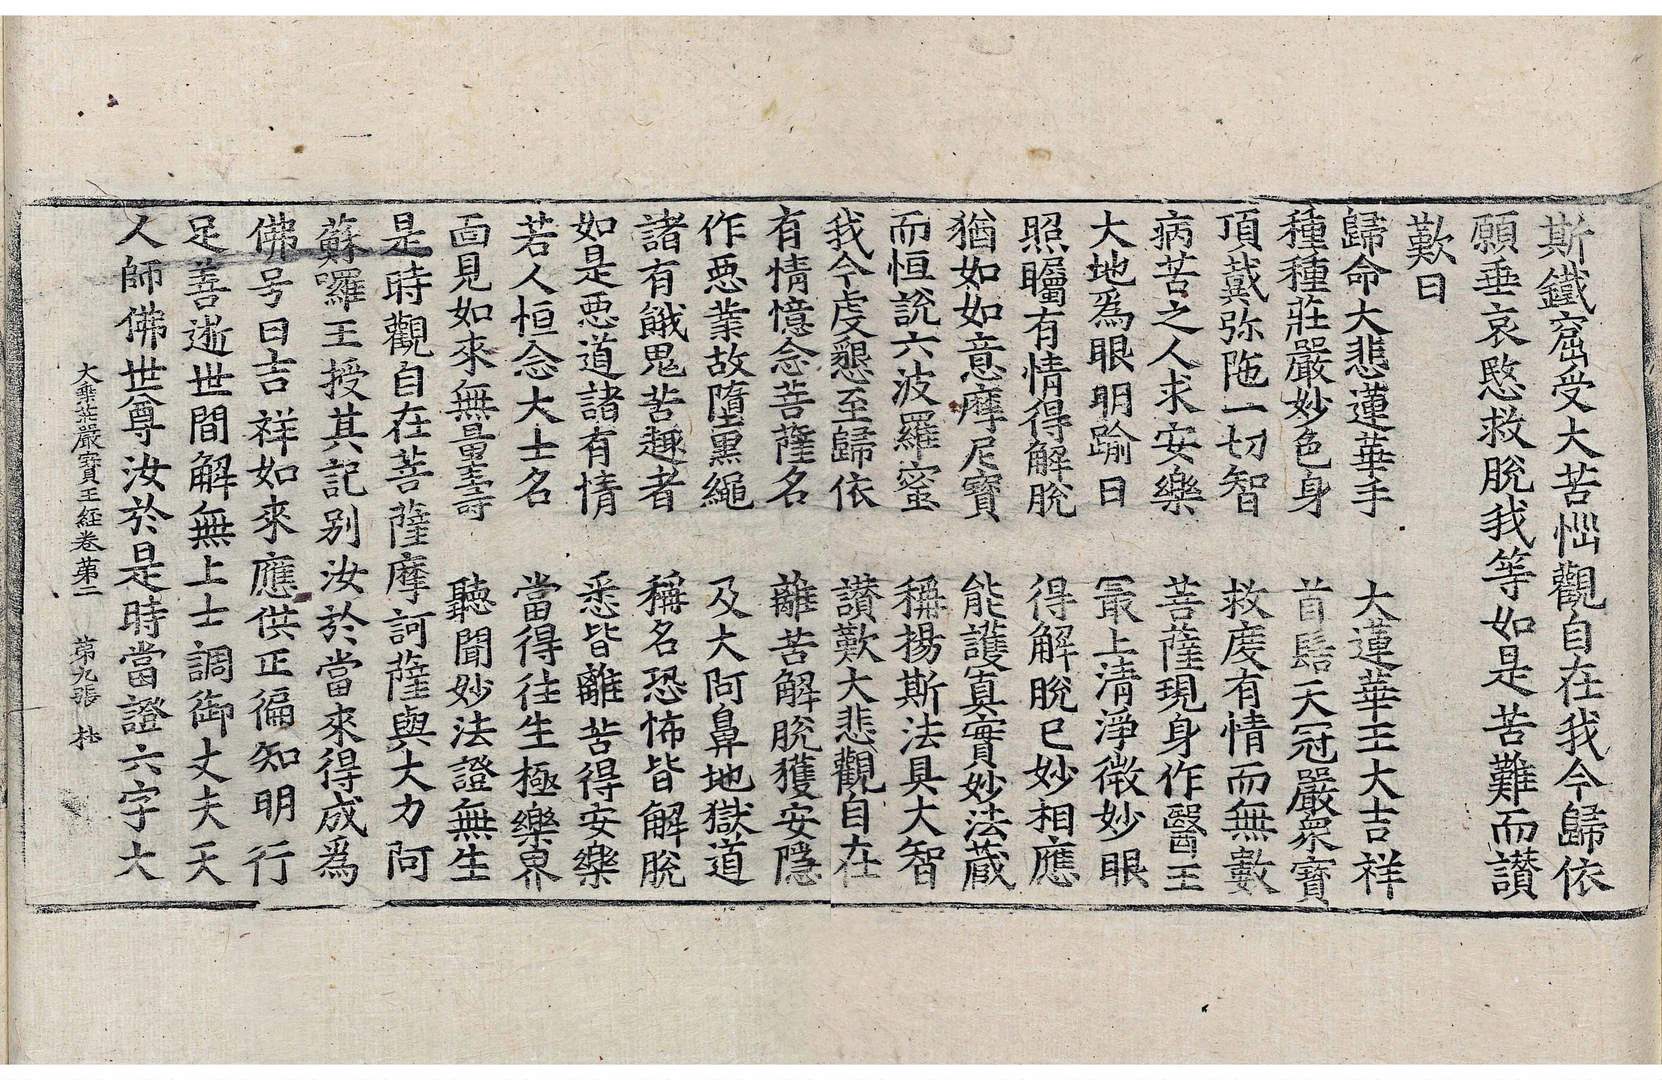 斯鐵窟受大苦惱觀自在我今歸依
願垂哀愍救脫我等如是苦難而讃
歎曰
歸命大悲蓮華手　大蓮華王大吉祥
種種莊嚴妙色身　首髻天冠嚴衆寶
頂戴弥陁一切智　救度有情而無數
病苦之人求安樂　菩薩現身作醫王
大地爲眼明踰日　最上清淨微妙眼
照矚有情得解脫　得解脫已妙相應
猶如如意摩尼寶　能護眞實妙法藏
而恒說六波羅蜜　稱揚斯法具大智
我今虔懇至歸依　讃歎大悲觀自在
有情憶念菩薩名　離苦解脫獲安隱
作惡業故墮黑繩　及大阿鼻地獄道
諸有餓鬼苦趣者　稱名恐怖皆解脫
如是惡道諸有情　悉皆離苦得安樂
若人恒念大士名　當得往生極樂界
面見如來無量壽　聽聞妙法證無生
是時觀自在菩薩摩訶薩與大力阿
蘇囉王授其記别汝於當來得成爲
佛号曰吉祥如來應供正徧知明行
足善逝世間解無上士調御丈夫天
人師佛世尊汝於是時當證六字大
大乘莊嚴寶王經卷第二　第九張　杜